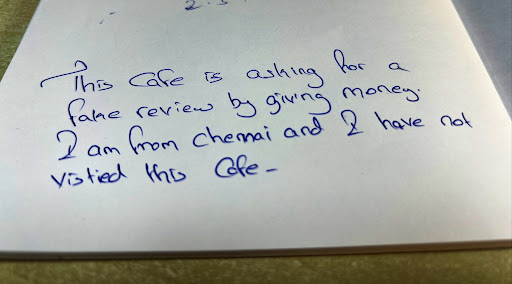 This Cafe is asking for a
fake review by giving money.
I am from Chennai and I have not
vistied this Cafe-